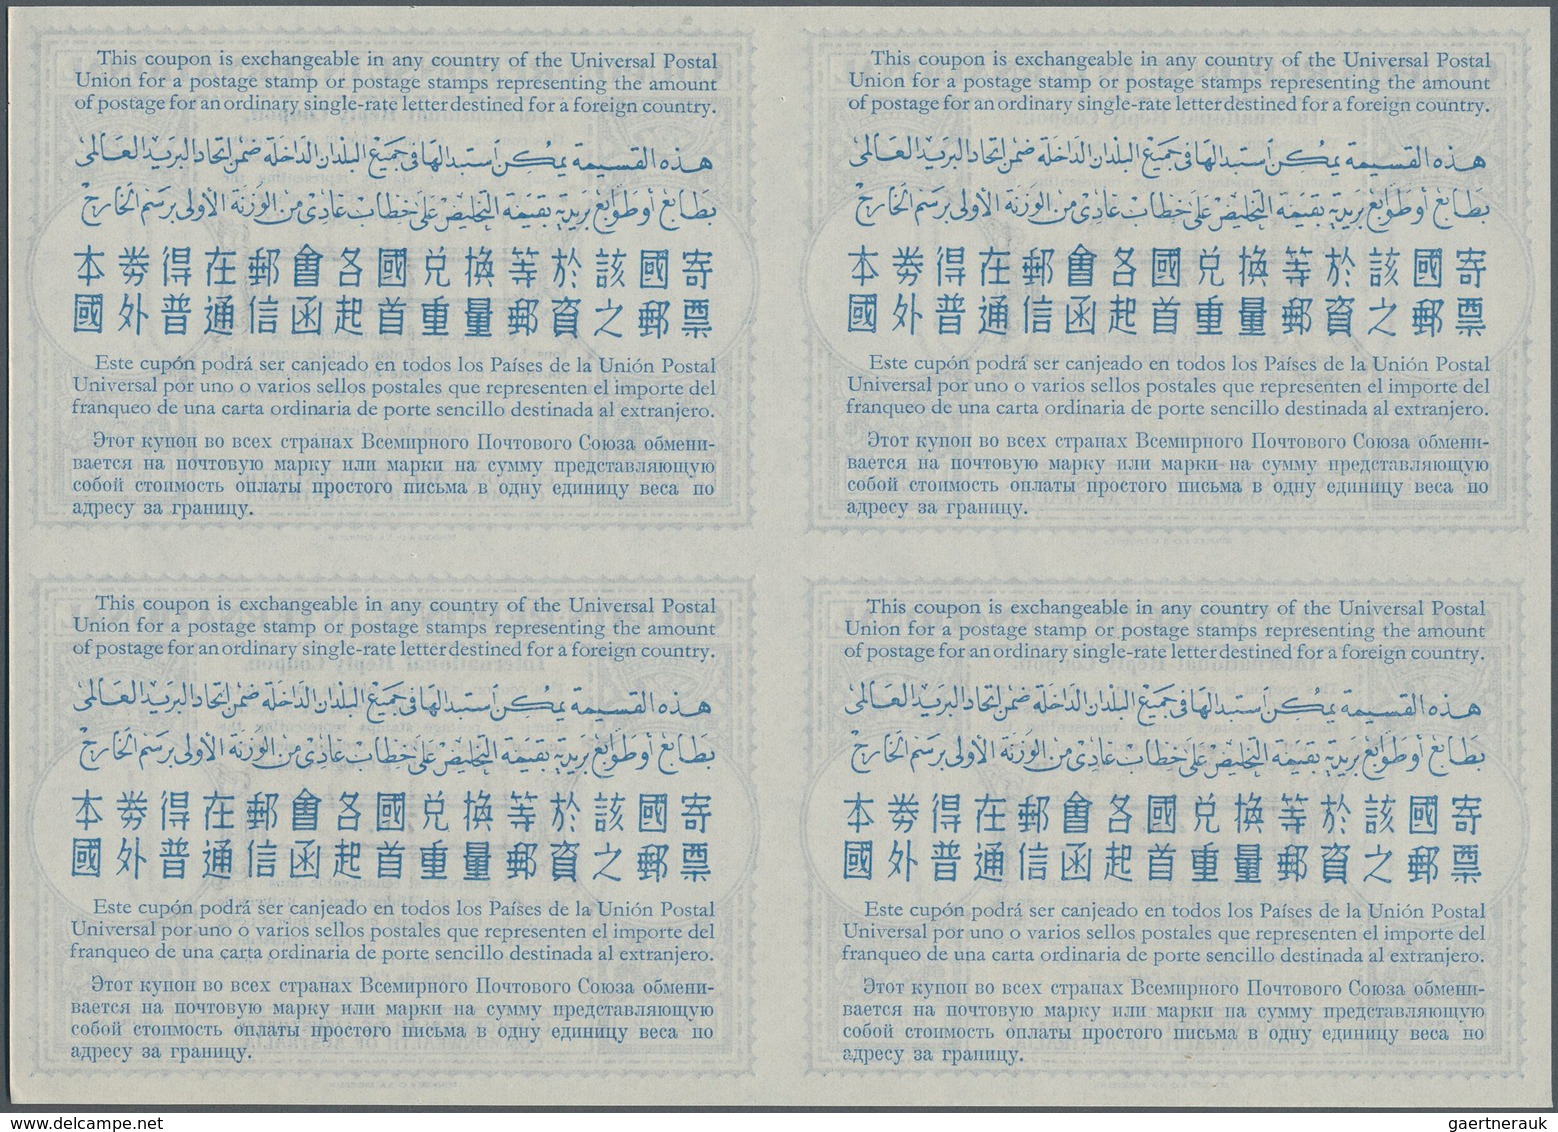 This coupon is exchangeable in any country of the Universal Postal
Union for a postage stamp or postage stamps representing the amount
of postage for an ordinary single-rate letter destined for a foreign country.
هذه القسيمة يمكن استبدالها في جميع البلدان الداخلة ضمن اتحاد البريد العالمى
بطابع أو طوابع بريدية بقيمة التخليص على خطاب عادى من الوزنة الأولى برسم الخارج
本劵得在郵會各國兌換等於該國寄
國外普通信函起首重量郵資之郵票
Este cupón podrá ser canjeado en todos los Países de la Unión Postal
Universal por uno o varios sellos postales que representen el importe del
franqueo de una carta ordinaria de porte sencillo destinada al extranjero.
Этот купон во всех странах Всемирного Почтового Союза обмени-
вается на почтовую марку или марки на сумму представляющую
собой стоимость оплаты простого письма в одну единицу веса по
адресу за границу.
This coupon is exchangeable in any country of the Universal Postal
Union for a postage stamp or postage stamps representing the amount
of postage for an ordinary single-rate letter destined for a foreign country.
هذه القسيمة يمكن استبدالها في جميع البلدان الداخلة ضمن اتحاد البريد العالمى
بطابع أو طوابع بريدية بقيمة التخليص على خطاب عادى من الوزنة الأولى برسم الخارج
本劵得在郵會各國兌換等於該國寄
國外普通信函起首重量郵資之郵票
Este cupón podrá ser canjeado en todos los Países de la Unión Postal
Universal por uno o varios sellos postales que representen el importe del
franqueo de una carta ordinaria de porte sencillo destinada al extranjero.
Этот купон во всех странах Всемирного Почтового Союза обмени-
вается на почтовую марку или марки на сумму представляющую
собой стоимость оплаты простого письма в одну единицу веса по
адресу за границу.
This coupon is exchangeable in any country of the Universal Postal
Union for a postage stamp or postage stamps representing the amount
of postage for an ordinary single-rate letter destined for a foreign country.
هذه القسيمة يمكن استبدالها في جميع البلدان الداخلة ضمن اتحاد البريد العالمى
بطابع أو طوابع بريدية بقيمة التخليص على خطاب عادى من الوزنة الأولى برسم الخارج
本劵得在郵會各國兌換等於該國寄
國外普通信函起首重量郵資之郵票
Este cupón podrá ser canjeado en todos los Países de la Unión Postal
Universal por uno o varios sellos postales que representen el importe del
franqueo de una carta ordinaria de porte sencillo destinada al extranjero.
Этот купон во всех странах Всемирного Почтового Союза обмени-
вается на почтовую марку или марки на сумму представляющую
собой стоимость оплаты простого письма в одну единицу веса по
адресу за границу.
This coupon is exchangeable in any country of the Universal Postal
Union for a postage stamp or postage stamps representing the amount
of postage for an ordinary single-rate letter destined for a foreign country.
هذه القسيمة يمكن استبدالها في جميع البلدان الداخلة ضمن اتحاد البريد العالمى
بطابع أو طوابع بريدية بقيمة التخليص على خطاب عادى من الوزنة الأولى برسم الخارج
本劵得在郵會各國兌換等於該國寄
國外普通信函起首重量郵資之郵票
Este cupón podrá ser canjeado en todos los Países de la Unión Postal
Universal por uno o varios sellos postales que representen el importe del
franqueo de una carta ordinaria de porte sencillo destinada al extranjero.
Этот купон во всех странах Всемирного Почтового Союза обмени-
вается на почтовую марку или марки на сумму представляющую
собой стоимость оплаты простого письма в одну единицу веса по
адресу за границу.
gaertnerauk